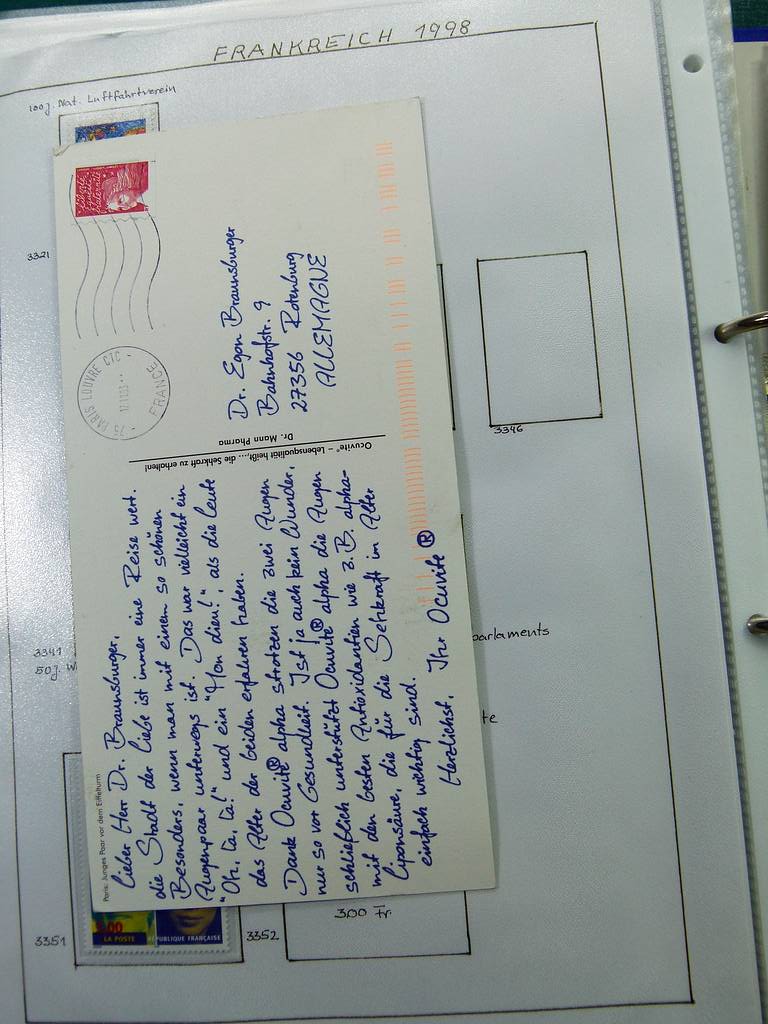 FRANKREICH 1998
100 J. Nat. Luftfahrtverein
3321
3346
3341
50 J. W
parlaments
te
3351
LA POSTE
RÉPUBLIQUE FRANÇAISE
3352
3.00 Fr.
Liberté
Égalité
Fraternité
75 PARIS LOUVRE CTC
FRANCE
Dr. Egon Braunsburger
Bahnhofstr. 9
27356 Rotenburg
ALLEMAGNE
Ocuvite® – Lebensqualität heißt,... die Sehkraft zu erhalten!
Dr. Mann Pharma
Paris: Junges Paar vor dem Eiffelturm
Lieber Herr Dr. Braunsburger,
die Stadt der Liebe ist immer eine Reise wert.
Besonders, wenn man mit einem so schönen
Augenpaar unterwegs ist. Das war vielleicht ein
"Oh, la, la!" und ein "Mon dieu!", als die Leute
das Alter der beiden erfahren haben.
Dank Ocuvite® alpha strotzen die zwei Augen
nur so vor Gesundheit. Ist ja auch kein Wunder,
schließlich unterstützt Ocuvite® alpha die Augen
mit den besten Antioxidantien wie z.B. alpha-
Liponsäure, die für die Sehkraft im Alter
einfach wichtig sind.
Herzlichst, Ihr Ocuvite®